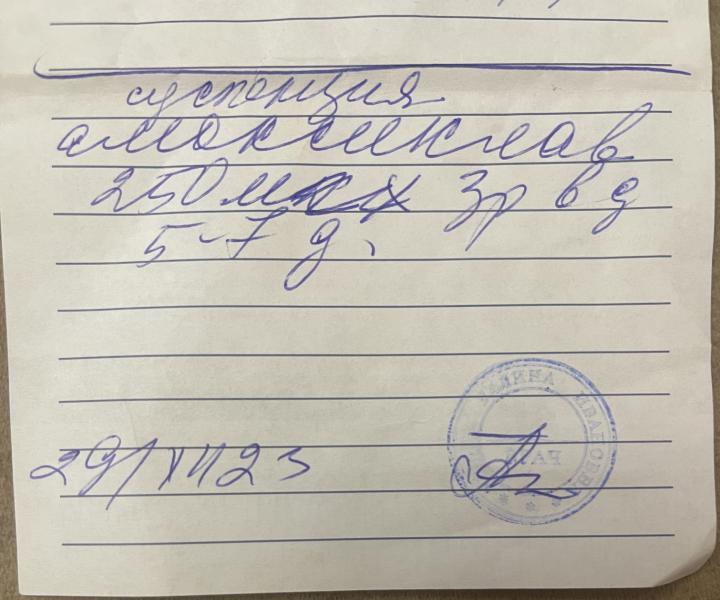 суспенция
амоксиклав
250 мг х 3р в д
5-7 д.
29/XII 23
ГАЛИНА ИВАНОВНА
ВРАЧ